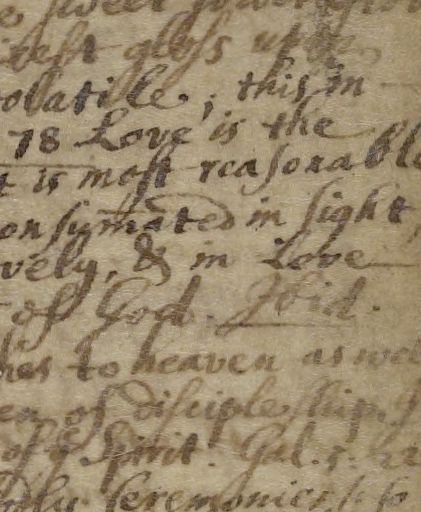 sweet
rest gloss upon
volatile; this in
78 Love is the
t is most reasonable
onsum̄ated in sight,
vely, & in Love
of God. Ibid.
hes to heaven as wel
en of discipleship.
of ye Spirit. Gal. 5. 22
Ceremonies